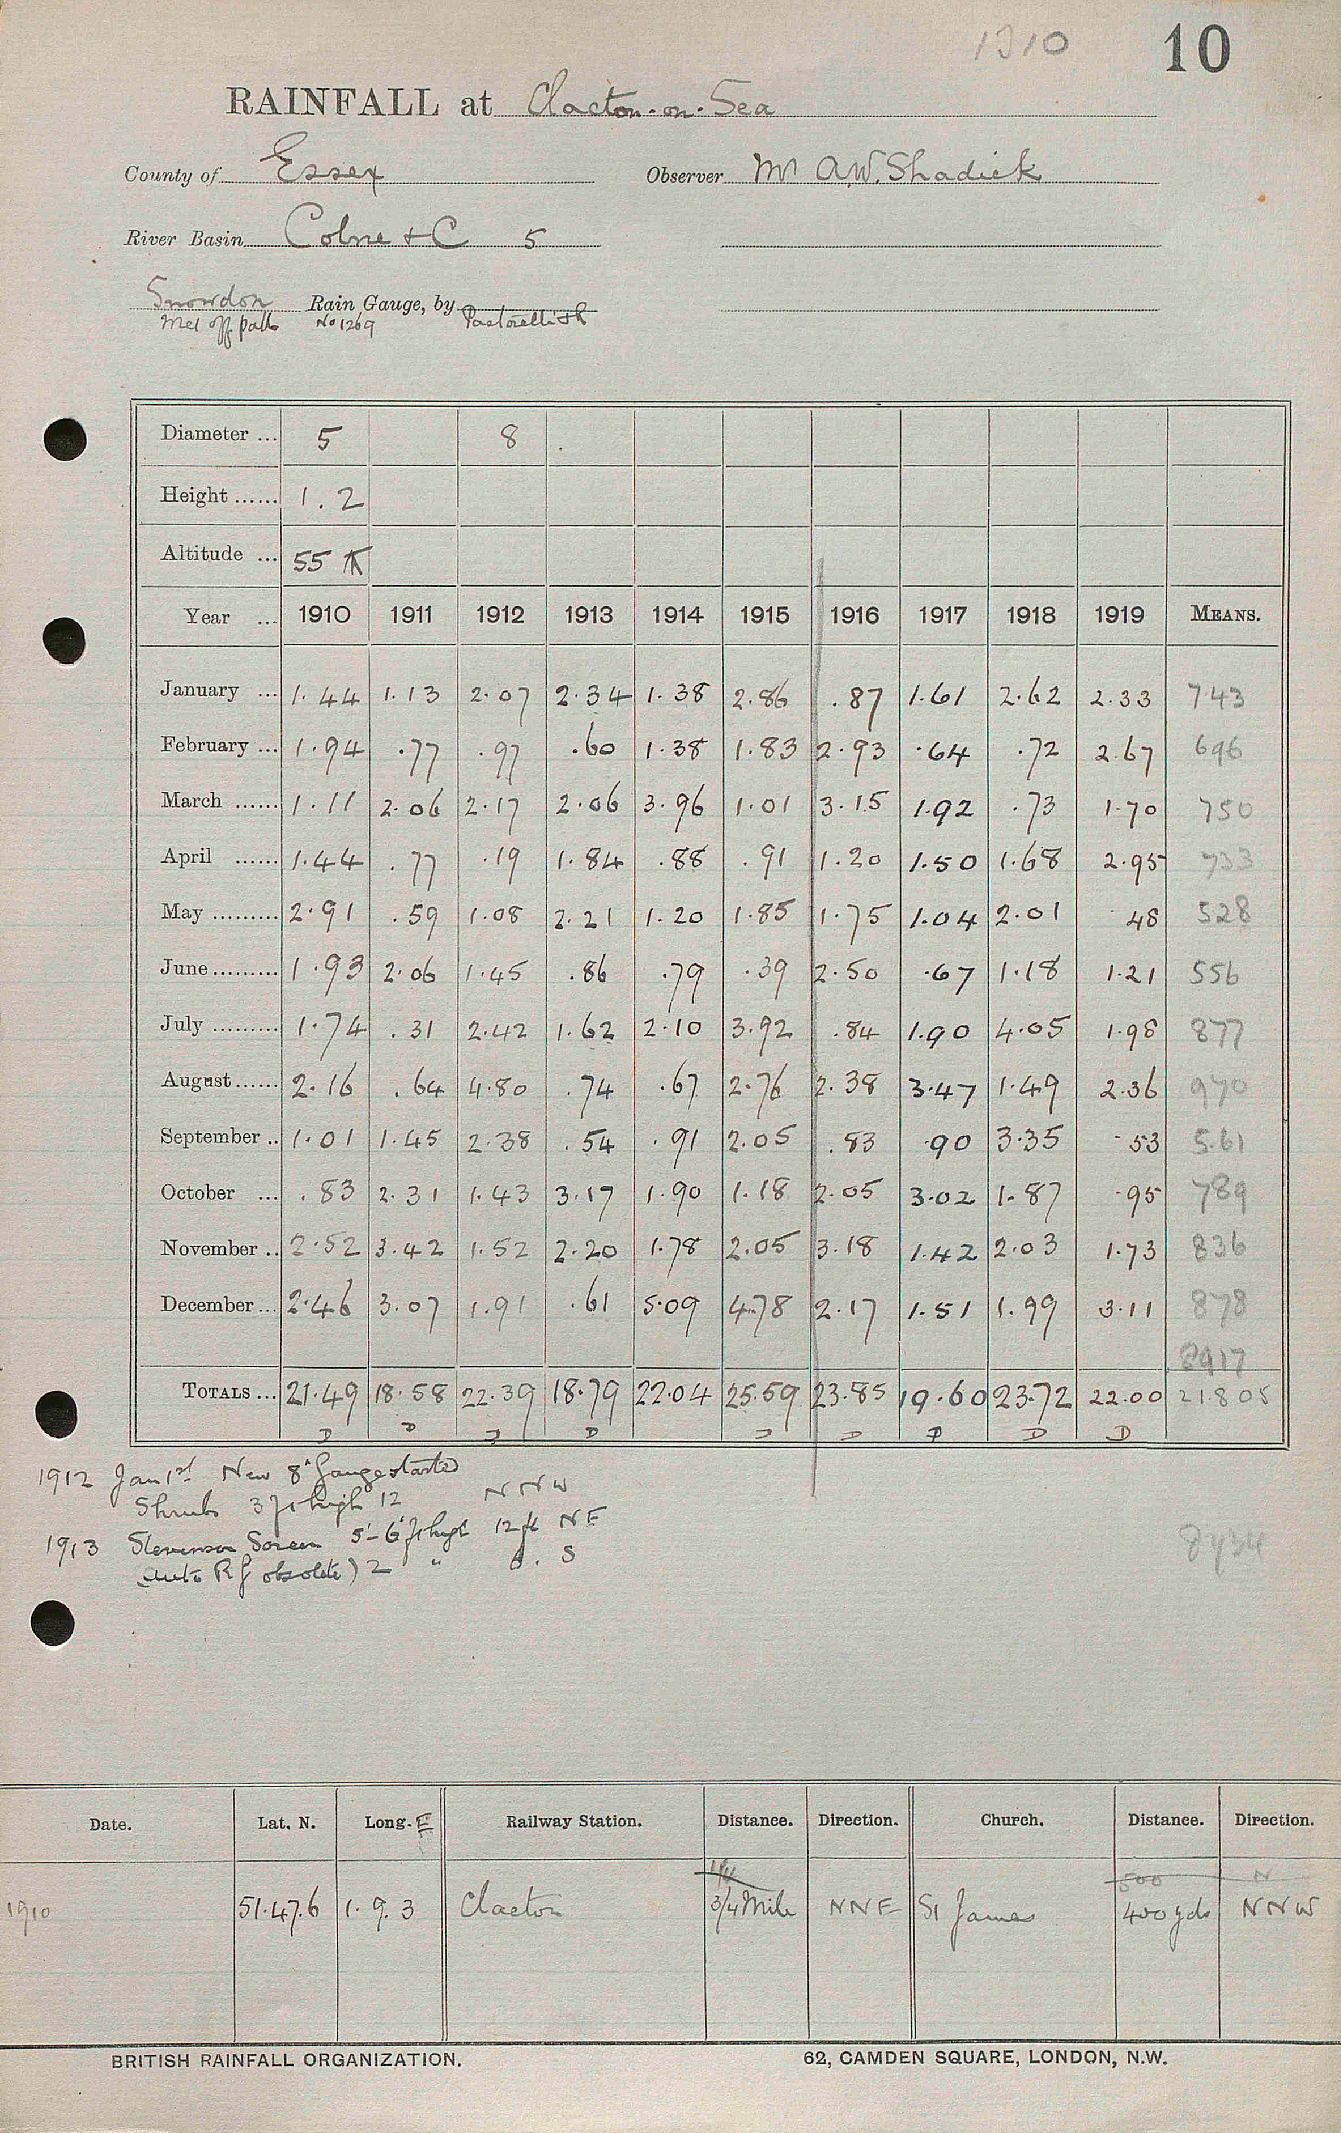 1910 10
RAINFALL at Clacton-on-Sea
County of Essex Observer Mr A.W. Shadick
River Basin Colne + C 5
Snowdon Rain Gauge, by
Met off patt No 1269
Diameter ... 5 8
Height ...... 1.2
Altitude ... 55
Year ... 1910 1911 1912 1913 1914 1915 1916 1917 1918 1919 MEANS.
January ... 1.44 1.13 2.07 2.34 1.38 2.86 .87 1.61 2.62 2.33 743
February ... 1.94 .77 .97 .60 1.38 1.83 2.93 .64 .72 2.67 696
March ...... 1.11 2.06 2.17 2.06 3.96 1.01 3.15 1.92 .73 1.70 750
April ...... 1.44 .77 .19 1.84 .88 .91 1.20 1.50 1.68 2.95 733
May ......... 2.91 .59 1.08 2.21 1.20 1.85 1.75 1.04 2.01 48 528
June ......... 1.93 2.06 1.45 .86 .79 .39 2.50 .67 1.18 1.21 556
July ......... 1.74 .31 2.42 1.62 2.10 3.92 .84 1.90 4.05 1.98 877
August ...... 2.16 .64 4.80 .74 .67 2.76 2.38 3.47 1.49 2.36 970
September .. 1.01 1.45 2.38 .54 .91 2.05 .83 .90 3.35 .53 5.61
October ... .83 2.31 1.43 3.17 1.90 1.18 2.05 3.02 1.87 .95 789
November .. 2.52 3.42 1.52 2.20 1.78 2.05 3.18 1.42 2.03 1.73 836
December ... 2.46 3.07 1.91 .61 5.09 4.78 2.17 1.51 1.99 3.11 878
8917
TOTALS ... 21.49 18.58 22.39 18.79 22.04 25.59 23.85 19.60 23.72 22.00 21805
D D D D D D D D D
1912 Jan 1st New 8" Gauge started
Shrubs 3 ft high 12 NNW
1913 Stevenson Screen 5'-6" ft high 12 ft NE
(auto Rg obsolete) 2 " S
Date. Lat. N. Long. E Railway Station. Distance. Direction. Church. Distance. Direction.
1/4 500 N
1910 51.47.6 1.9.3 Clacton 3/4 Mile NNE St James 400 yds NNW
BRITISH RAINFALL ORGANIZATION. 62, CAMDEN SQUARE, LONDON, N.W.